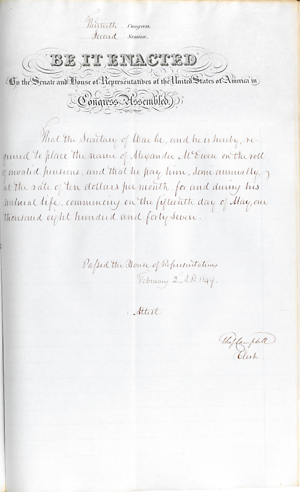 Thirtieth Congress.
Second Session.
BE IT ENACTED
By the Senate and House of Representatives of the United States of America in
Congress Assembled,
That the Secretary of War be, and he is hereby, re-
quired to place the name of Alexander McEwen on the roll
of invalid pensions, and that he pay him, semi annually,
at the rate of ten dollars per month for and during his
natural life, commencing on the fifteenth day of May, one
thousand eight hundred and forty seven.
Passed the House of Representatives
February 2 A.D. 1849.
Attest
Campbell
Clerk